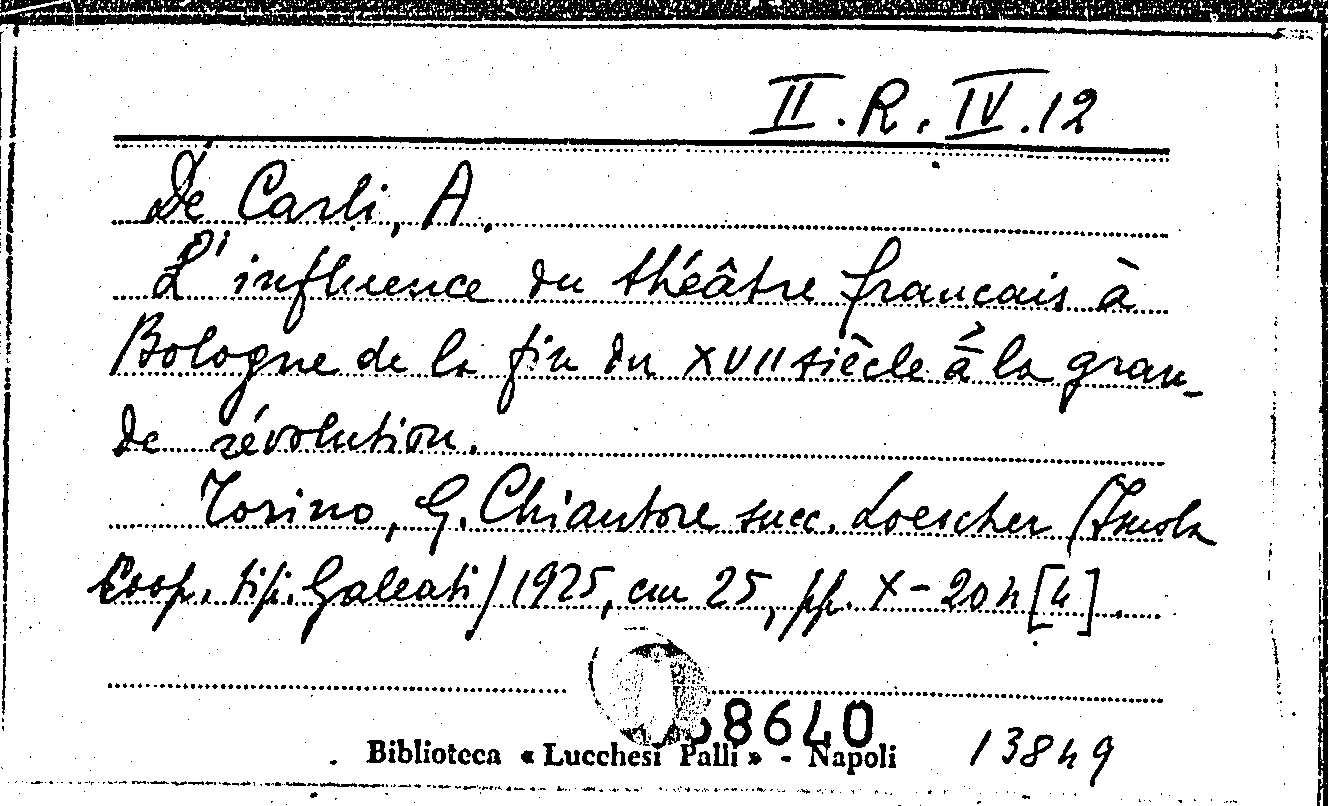 II. R. IV. 12
De Carli, A.
L'influence du théâtre français à
Bologne de la fin du XVII siècle à la gran-
de révolution.
Torino, G. Chiantore succ. Loescher (Imola
Coop. tip. Galeati) 1925, cm 25, pp. X-204 [4].
8640
Biblioteca « Lucchesi Palli » - Napoli 13849